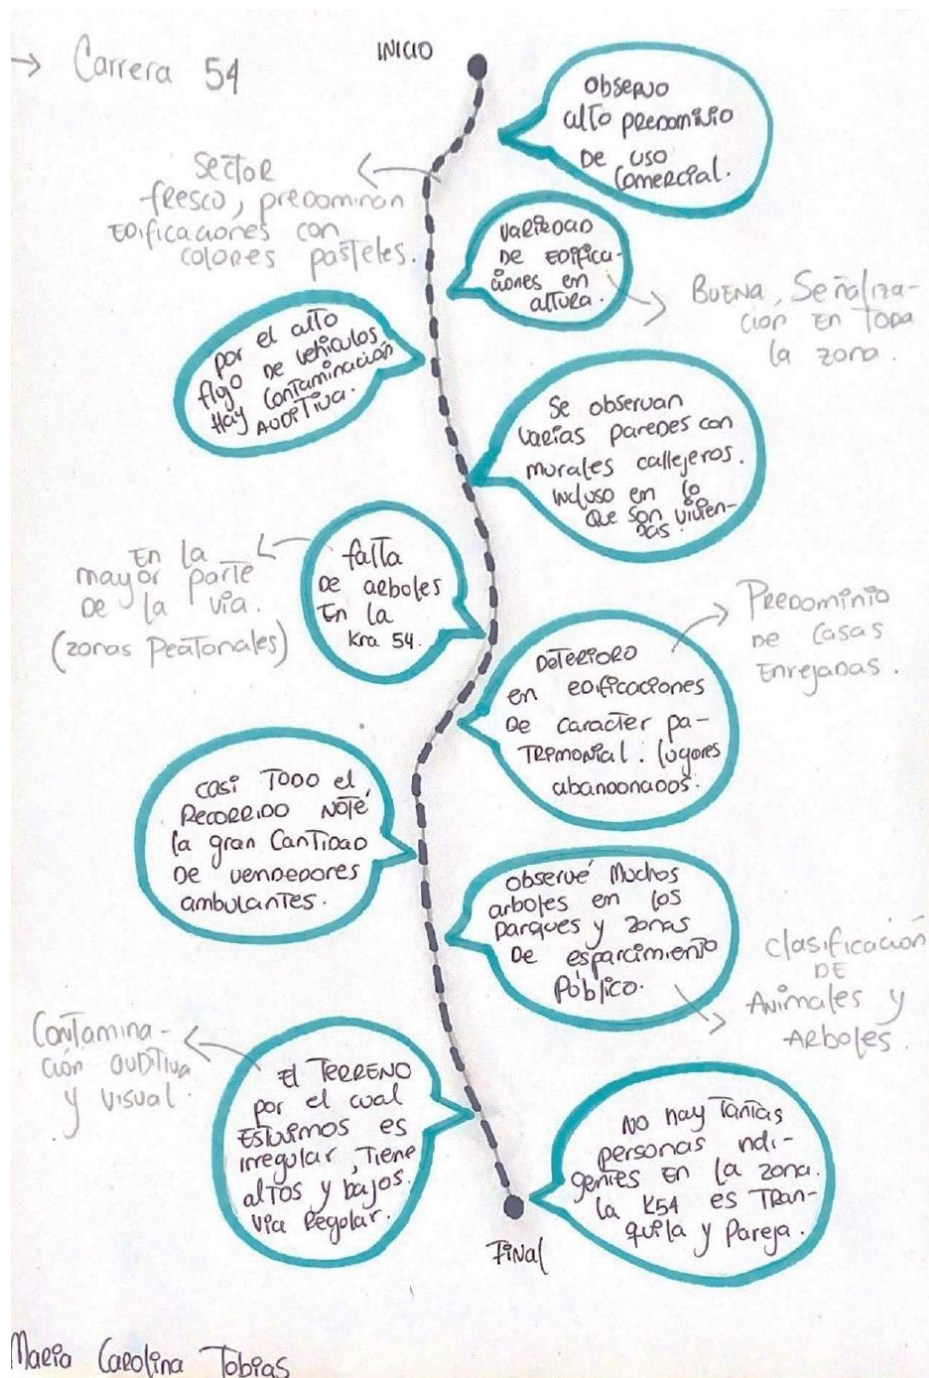 → Carrera 54
INICIO
Observo
alto predominio
de uso
comercial.
Sector
fresco, predominan
edificaciones con
colores pasteles.
Variedad
de edifica-
ciones en
altura.
Buena, Señaliza-
cion en toda
la zona.
por el alto
flujo de vehiculos
Hay contaminación
auditiva.
Se observan
varias paredes con
murales callejeros.
incluso en lo
que son vivien-
das.
falta
de arboles
En la
kra 54.
En la
mayor parte
de la via.
(zonas peatonales)
Deterioro
en edificaciones
de caracter pa-
trimonial. lugares
abandonados.
Predominio
de casas
Enrejadas.
casi todo el
recorrido noté
la gran cantidad
de vendedores
ambulantes.
observé Muchos
arboles en los
parques y zonas
de esparcimiento
Público.
clasificación
de
Animales y
Arboles.
El terreno
por el cual
estuvimos es
irregular, tiene
altos y bajos.
Via Regular.
Contamina-
ción auditiva
y visual.
No hay tantas
personas indi-
gentes en la zona.
la K54 es tran-
quila y pareja.
Final
Maria Carolina Tobias